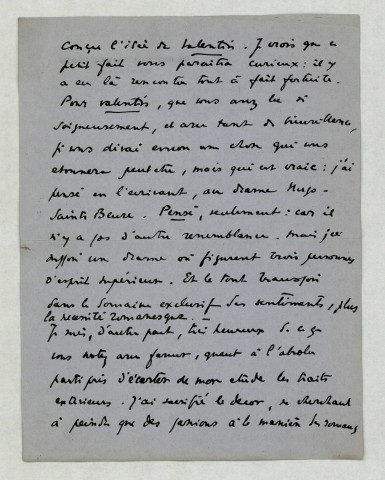 conçu l'idée de Valentin. Je crois que ce
petit fait vous paraîtra curieux : il y
a eu là rencontre tout à fait fortuite.
Pour Valentin, que vous avez lu si
soigneusement, et avec tant de bienveillance,
je vous dirai encore une chose qui vous
étonnera peut être, mais qui est vraie : j'ai
pensé en l'écrivant, au drame Hugo-
Sainte Beuve. Pensé, seulement : car il
n'y a pas d'autre ressemblance. Mais j'ai
un drame où figurent trois personnes
d'esprit supérieur. Et le tout
dans le domaine exclusif des sentiments, plus
la nécessité romanesque. —
Je suis, d'autre part, très heureux de ce que
vous notez avec faveur, quant à l'absolu
parti pris d'écarter de mon étude les traits
extérieurs. J'ai sacrifié le décor, ne cherchant
à peindre que des passions à la manière des romans